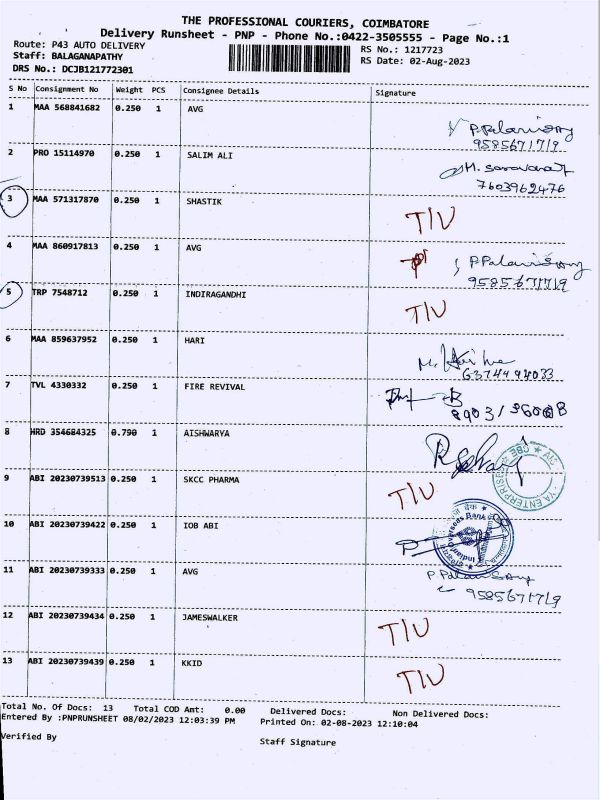 THE PROFESSIONAL COURIERS, COIMBATORE
Delivery Runsheet - PNP - Phone No.:0422-3505555 - Page No.:1
Route: P43 AUTO DELIVERY
RS No.: 1217723
Staff: BALAGANAPATHY
RS Date: 02-Aug-2023
DRS No.: DCJB121772301
S No Consignment No Weight PCS Consignee Details Signature
1 MAA 568841682 0.250 1 AVG
9585671719
2 PRO 15114970 0.250 1 SALIM ALI
7603962476
3 MAA 571317870 0.250 1 SHASTIK T/U
4 MAA 860917813 0.250 1 AVG
9585671719
5 TRP 7548712 0.250 1 INDIRAGANDHI T/U
6 MAA 859637952 0.250 1 HARI
6374494033
7 TVL 4330332 0.250 1 FIRE REVIVAL
8 HRD 354684325 0.790 1 AISHWARYA
9 ABI 20230739513 0.250 1 SKCC PHARMA T/U
10 ABI 20230739422 0.250 1 IOB ABI
Indian Overseas Bank
11 ABI 20230739333 0.250 1 AVG
9585671719
12 ABI 20230739434 0.250 1 JAMESWALKER T/U
13 ABI 20230739439 0.250 1 KKID T/U
Total No. Of Docs: 13 Total COD Amt: 0.00 Delivered Docs: Non Delivered Docs:
Entered By :PNPRUNSHEET 08/02/2023 12:03:39 PM Printed On: 02-08-2023 12:10:04
Verified By
Staff Signature